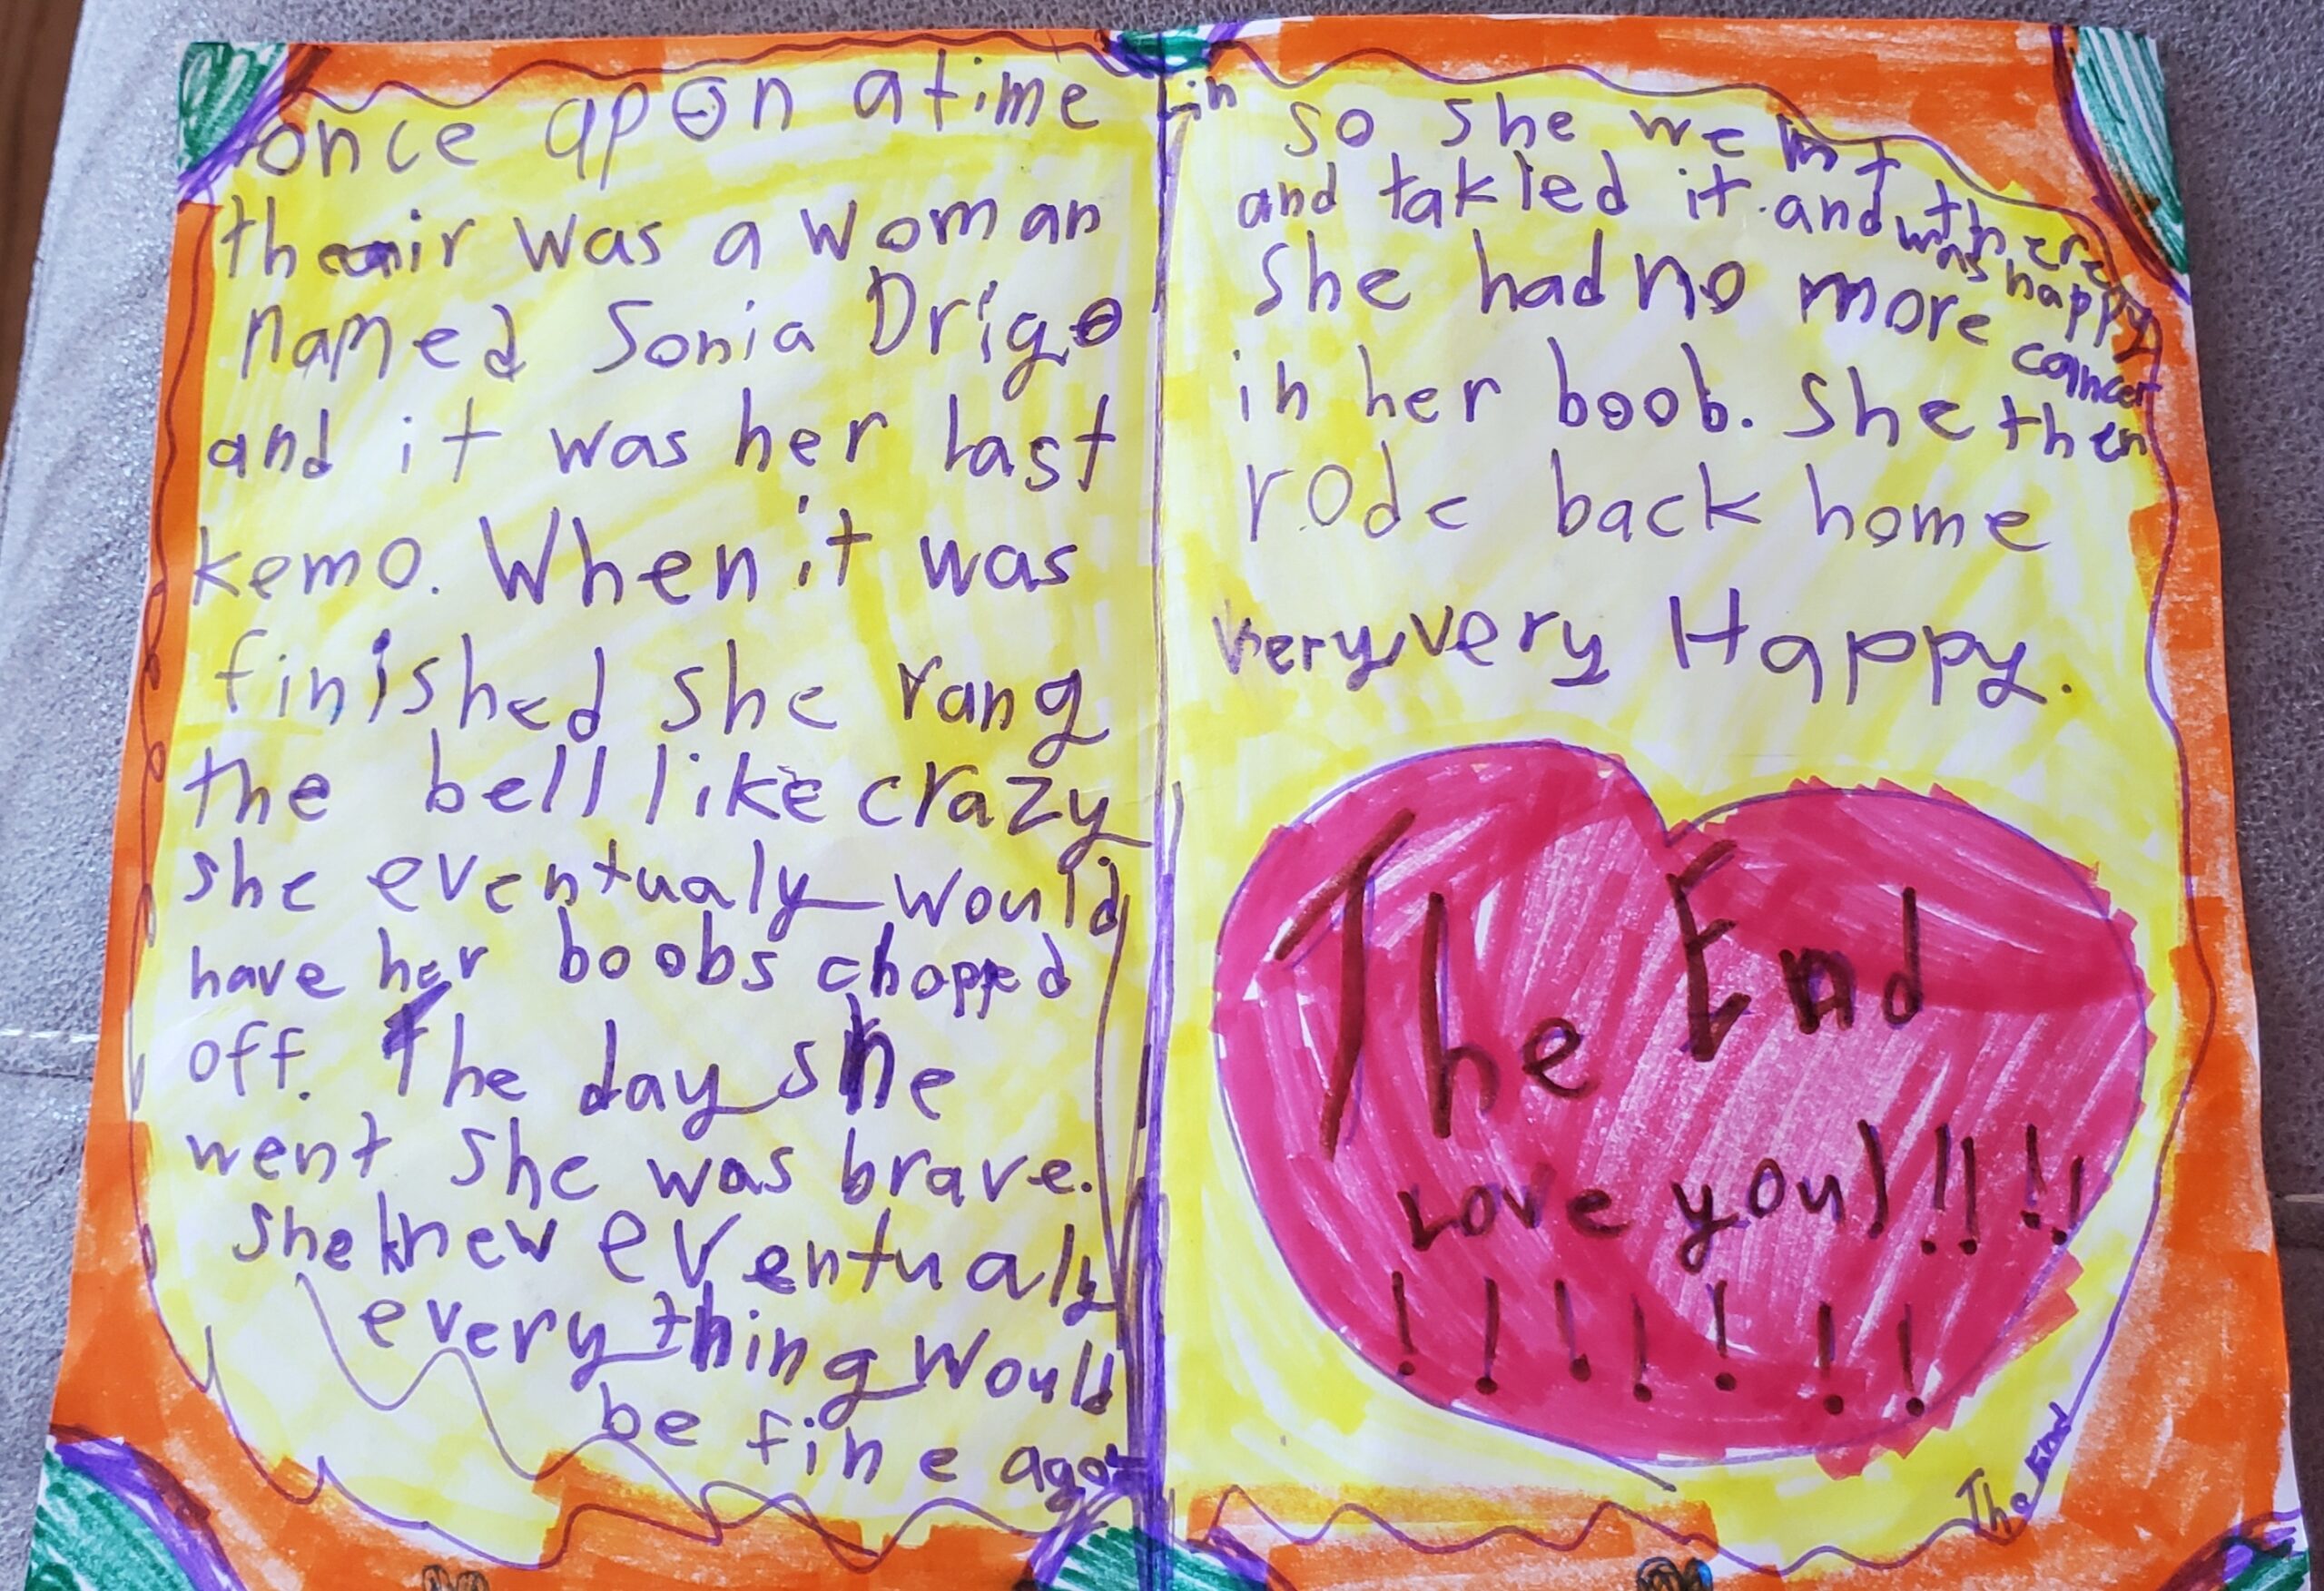 once apon a time
thair was a woman
named Sonia Drigo
and it was her last
kemo. When it was
finished she rang
the bell like crazy
she eventualy would
have her boobs chopped
off. The day she
went she was brave.
she knew eventualy
every thing would
be fine aga
in so she went
and takled it and there
was happy
she had no more cancer
in her boob. She then
rode back home
very very Happy.
The End
Love you!!!!!
!!!!!!!
The End